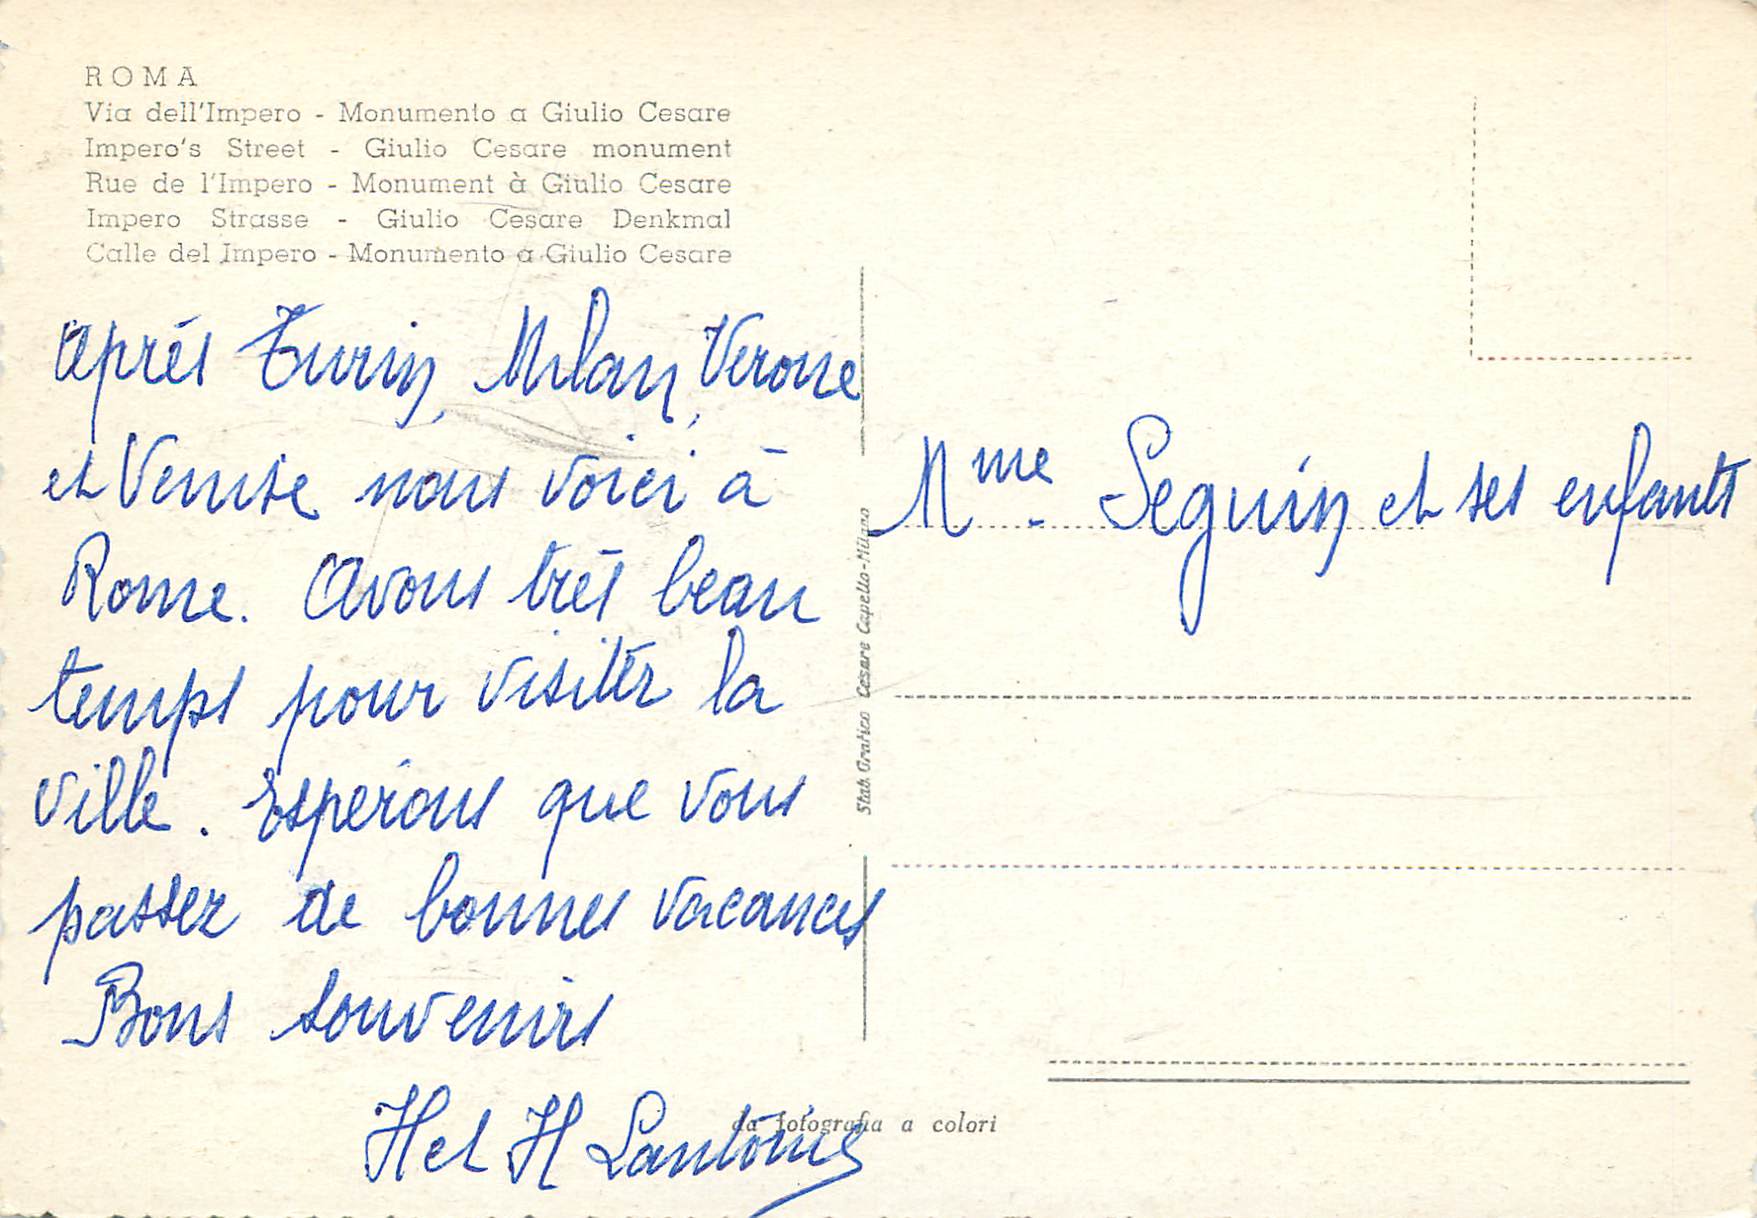 ROMA
Via dell'Impero - Monumento a Giulio Cesare
Impero's Street - Giulio Cesare monument
Rue de l'Impero - Monument à Giulio Cesare
Impero Strasse - Giulio Cesare Denkmal
Calle del Impero - Monumento a Giulio Cesare
Après Turin, Milan, Verone
et Venise nous voici à
Rome. Avons très beau
temps pour visiter la
ville. Espérons que vous
passez de bonnes vacances
Bons souvenirs
H et H
Stab. Grafico Cesare Capello-Milano
Mme. Seguin et ses enfants
da fotografia a colori